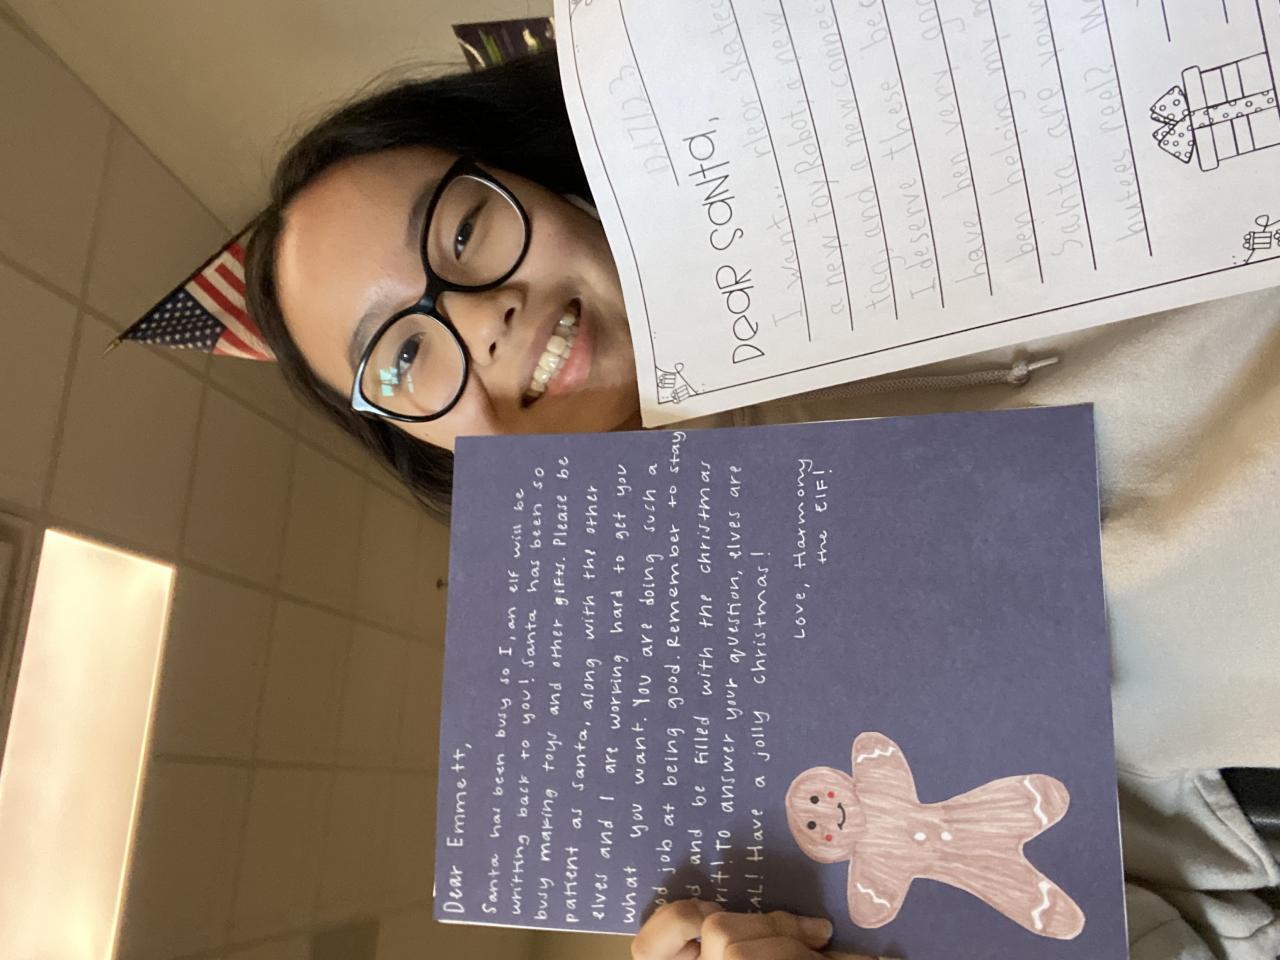 Dear Emmett,
Santa has been busy so I, an elf will be
writting back to you! Santa has been so
busy making toys and other gifts. Please be
patient as santa, along with the other
elves and I are working hard to get you
what you want. You are doing such a
job at being good. Remember to stay
and be filled with the christmas
To answer your question, elves are
Have a jolly christmas!
Love, Harmony
the Elf!
12/7/23
Dear Santa,
I want... rler skates
a new toy Robot, a new
tag, and a new connec
I deserve these bec
have ben very goo
ben helping my
Santa are your
butees reel?